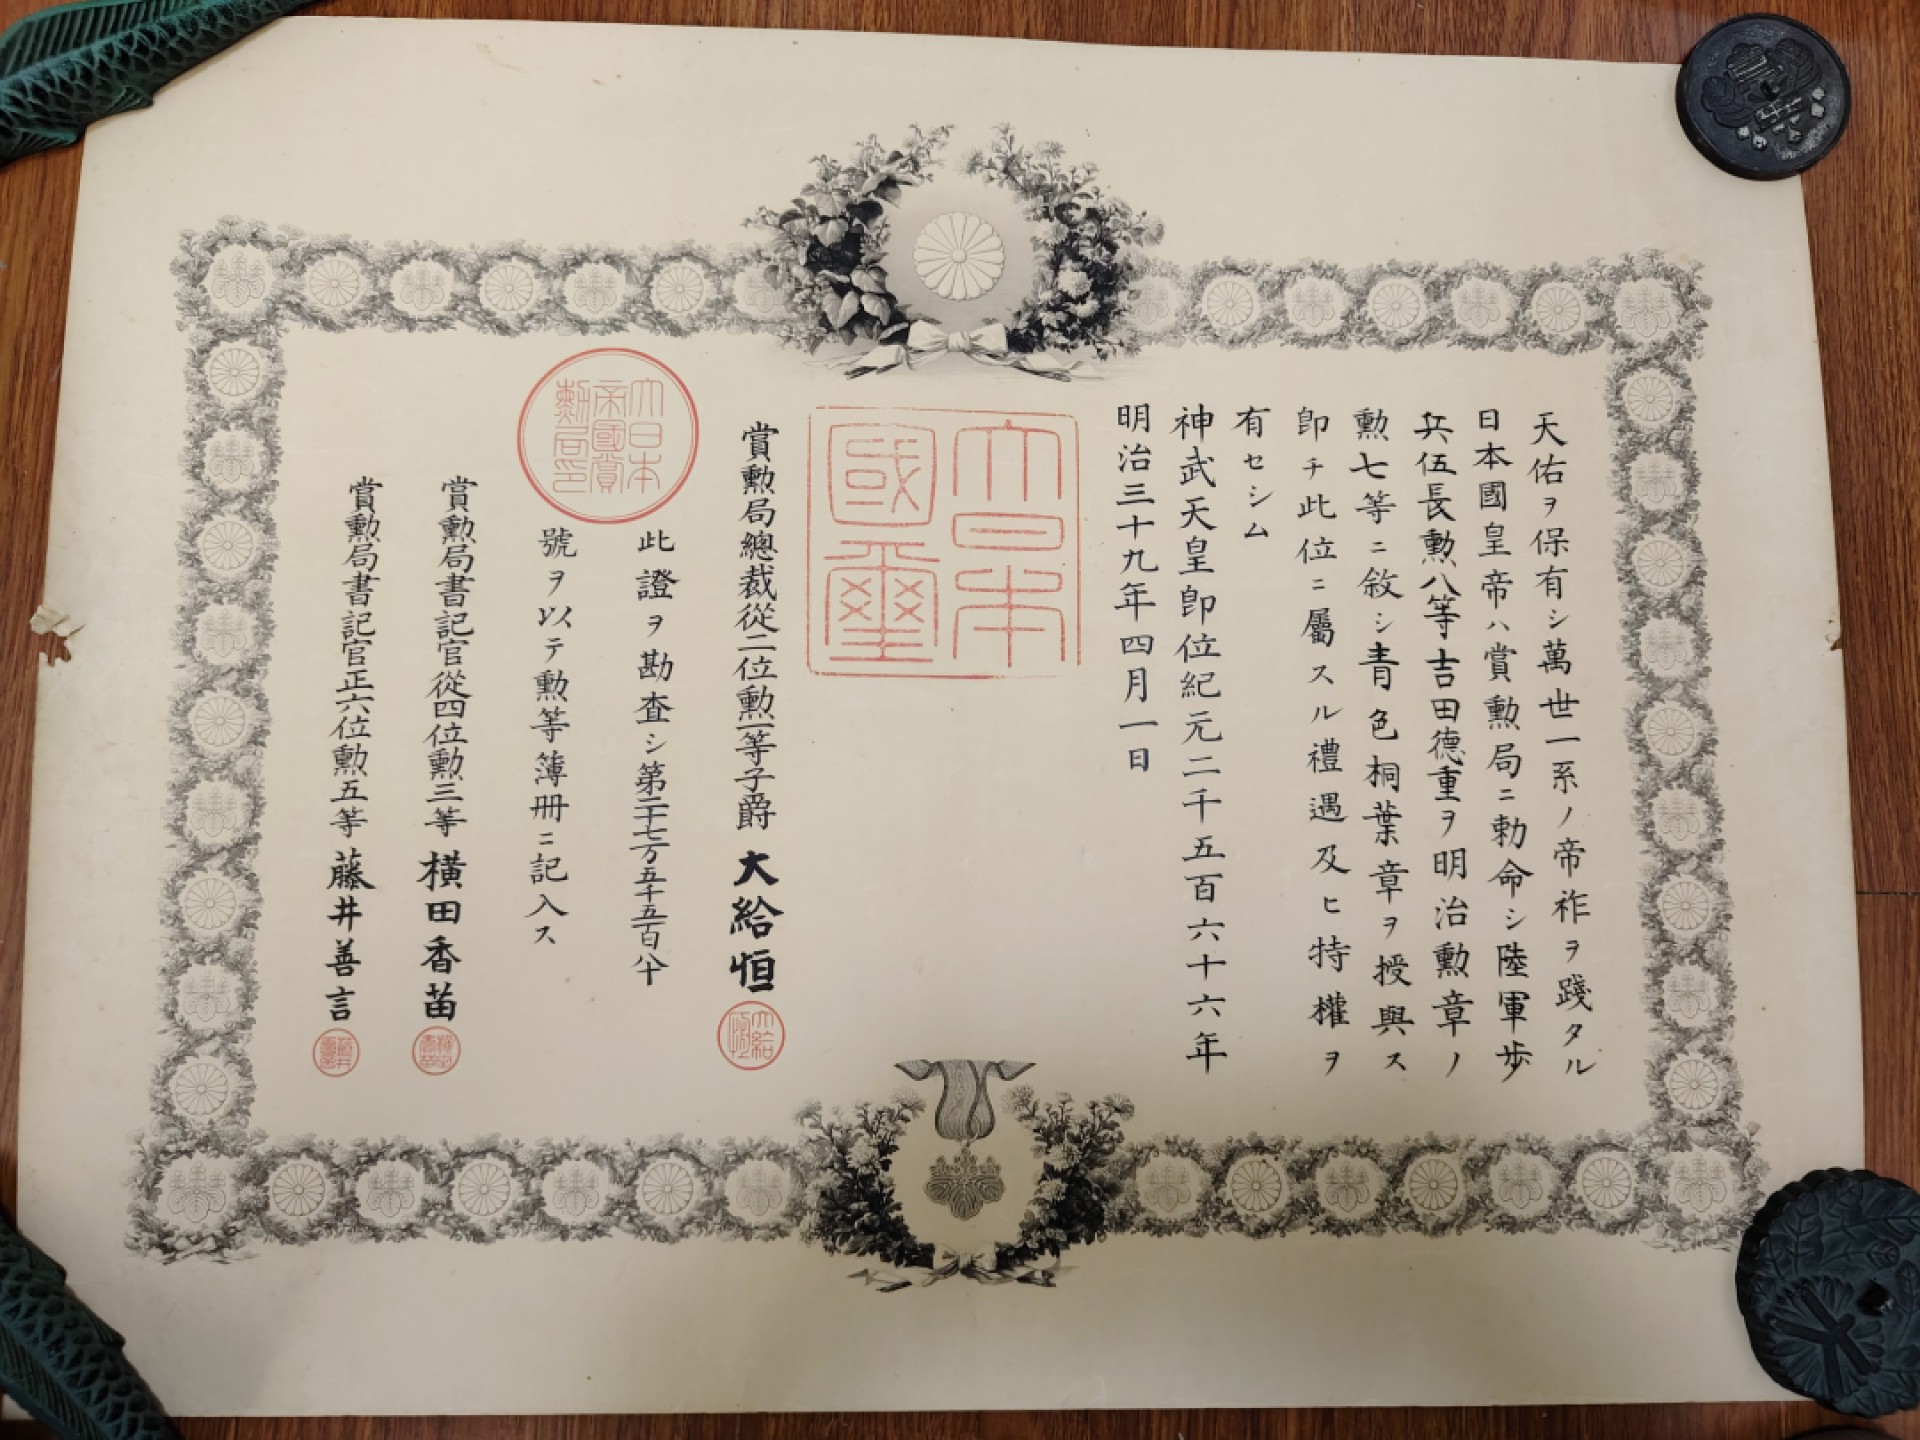 天佑ヲ保有シ萬世一系ノ帝祚ヲ踐タル
日本國皇帝ハ賞勲局ニ勅命シ陸軍歩
兵伍長勲八等吉田德重ヲ明治勲章ノ
勲七等ニ敘シ青色桐葉章ヲ授與ス
卽チ此位ニ屬スル禮遇及ヒ特權ヲ
有セシム
神武天皇卽位紀元二千五百六十六年
明治三十九年四月一日
大日本
國璽
賞勲局總裁從二位勲一等子爵大給恒
大日本
帝國賞
勲局印
此證ヲ勘査シ第二十七万五千五百八十
號ヲ以テ勲等簿冊ニ記入ス
賞勲局書記官從四位勲三等橫田香苗
賞勲局書記官正六位勲五等藤井善言